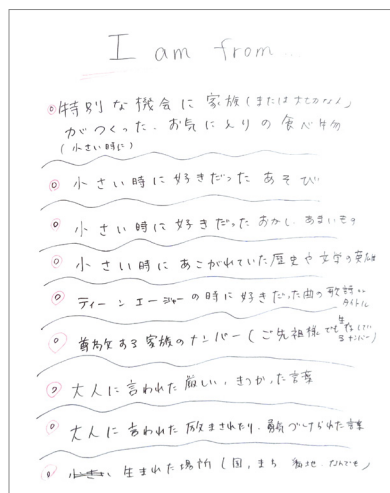 I am from...
特別な機会に家族(または
がつくった、お気に入りの食べ物
(小さい時に)
小さい時に好きだった あそび
小さい時に好きだった おかし、あまいもの
小さい時に あこがれていた歴史や文学の英雄
ティーンエージャーの時に好きだった曲の歌詞
タイトル
尊敬ある家族のメンバー(ご先祖様でも
大人に言われた 厳しい、きつかった言葉
大人に言われた 励まされたり、勇気づけられた言葉
生まれた場所(国、まち なんでも)